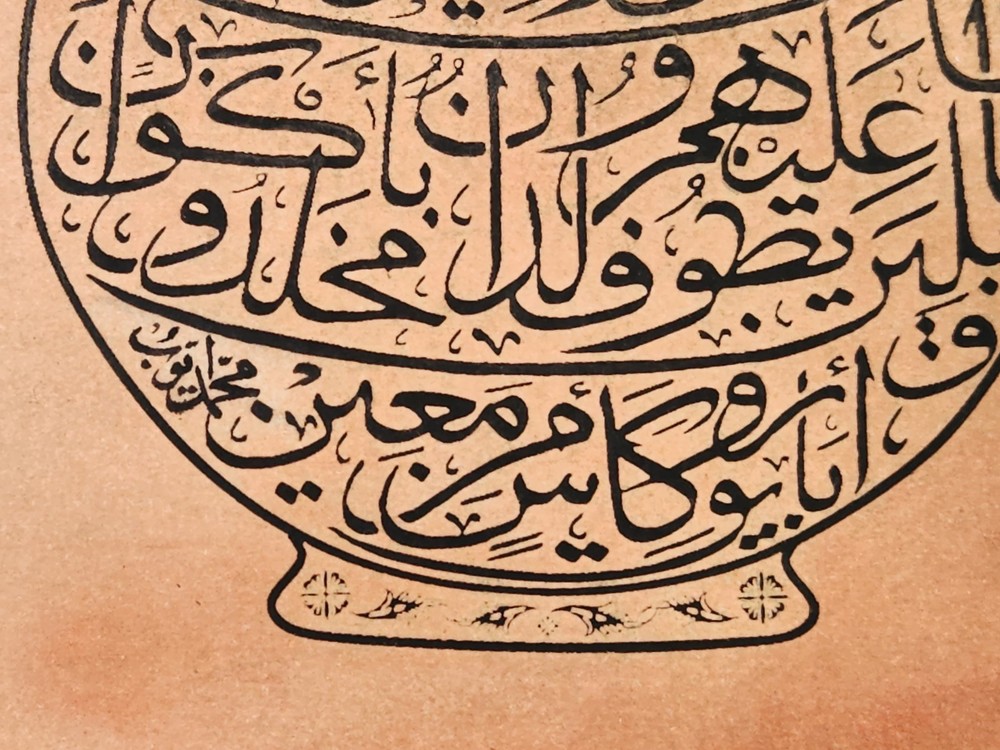 بلين يطوف عليهم ولدان مخلدون بأكواب و
أباريق وكأس من معين
محمد